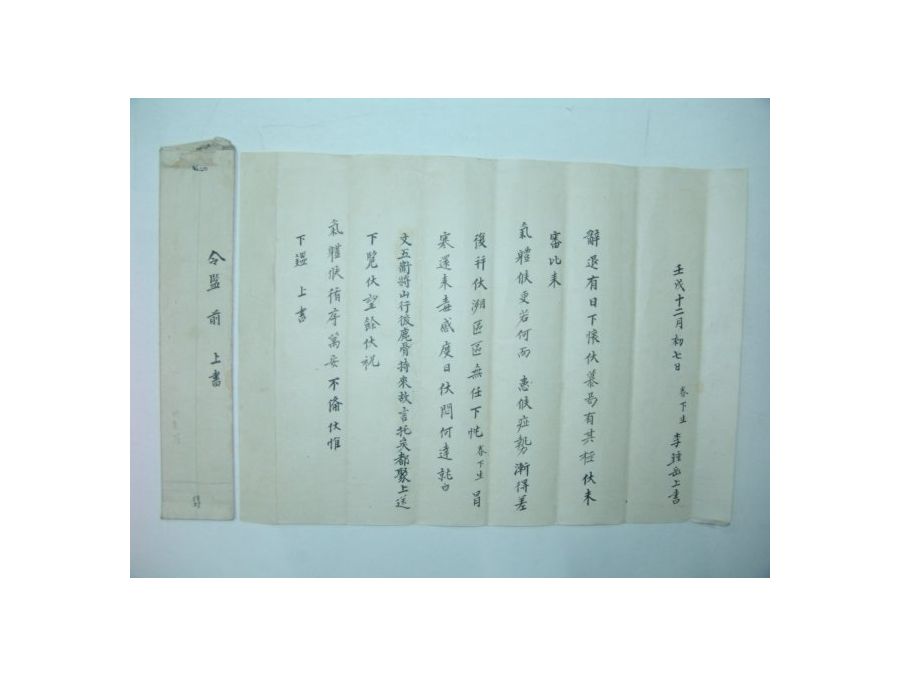 壬戌十二月初七日 眷下生 李鍾岳上書
辭退有日下懷伏慕曷有其極伏未
審比來
氣體候更若何而 患候症勢漸得差
復幷伏溯區區無任下忱眷下生冒
寒還來毒感度日伏悶何達就白
文五衛將山行後鹿骨持來故言托矣都聚上送
下覽伏望餘伏祝
氣體候循序萬安不備伏惟
下鑑 上書
令監 前 上書